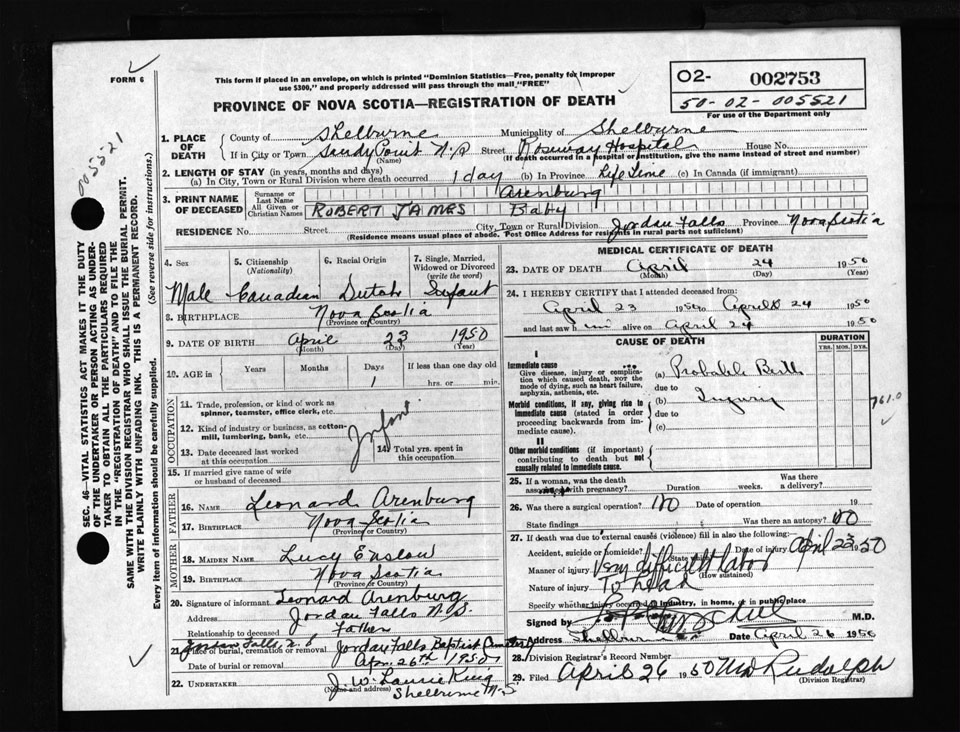 FORM 6
This form if placed in an envelope, on which is printed "Dominion Statistics—Free, penalty for improper
use $300," and properly addressed will pass through the mail "FREE"
O2- 002753
50-02-005521
For use of the Department only
PROVINCE OF NOVA SCOTIA—REGISTRATION OF DEATH
005521
SEC. 46—VITAL STATISTICS ACT MAKES IT THE DUTY
OF THE UNDERTAKER OR PERSON ACTING AS UNDER-
TAKER TO OBTAIN ALL THE PARTICULARS REQUIRED
IN THE "REGISTRATION OF DEATH" AND TO FILE THE
SAME WITH THE DIVISION REGISTRAR WHO SHALL ISSUE THE BURIAL PERMIT.
WRITE PLAINLY WITH UNFADING INK. THIS IS A PERMANENT RECORD.
Every item of information should be carefully supplied. (See reverse side for instructions.)
1. PLACE OF DEATH County of Shelburne Municipality of Shelburne
If in City or Town Sandy Point N.S (Name) Street Roseway Hospital House No.
(If death occurred in a hospital or institution, give the name instead of street and number)
2. LENGTH OF STAY (in years, months and days)
(a) In City, Town or Rural Division where death occurred 1 day (b) In Province Life Time (c) In Canada (if immigrant)
3. PRINT NAME OF DECEASED Surname or Last Name Arenburg
All Given or Christian Names ROBERT JAMES Baby
RESIDENCE No. Street City, Town or Rural Division Jordan Falls Province Nova Scotia
(Residence means usual place of abode. Post Office Address for residents in rural parts not sufficient)
4. Sex 5. Citizenship (Nationality) 6. Racial Origin 7. Single, Married, Widowed or Divorced (write the word)
Male Canadian Dutch Infant
8. BIRTHPLACE Nova Scotia
(Province or Country)
9. DATE OF BIRTH April 23 1950
(Month) (Day) (Year)
10. AGE in Years Months Days If less than one day old
1 hrs. or min.
OCCUPATION
11. Trade, profession or kind of work as spinner, teamster, office clerk, etc.
12. Kind of industry or business, as cotton-mill, lumbering, bank, etc.
Infant
13. Date deceased last worked at this occupation 14. Total yrs. spent in this occupation
15. If married give name of wife or husband of deceased
FATHER
16. NAME Leonard Arenburg
17. BIRTHPLACE Nova Scotia
(Province or Country)
MOTHER
18. MAIDEN NAME Lucy Enslow
19. BIRTHPLACE Nova Scotia
(Province or Country)
20. Signature of informant Leonard Arenburg
Address Jordan Falls N.S.
Relationship to deceased Father
21. Place of burial, cremation or removal Jordan Falls Baptist Cemetery
Jordan Falls, N.S.
Date of burial or removal Apr. 26th 1950
22. UNDERTAKER J. W. Laurie King
(Name and address) Shelburne N.S
MEDICAL CERTIFICATE OF DEATH
23. DATE OF DEATH April 24 1950
(Month) (Day) (Year)
24. I HEREBY CERTIFY that I attended deceased from:
April 23 1950 to April 24 1950
and last saw him alive on April 24 1950
CAUSE OF DEATH DURATION
YRS. MOS. DYS.
I
Immediate cause
Give disease, injury or complication which caused death, NOT the mode of dying, such as heart failure, asphyxia, asthenia, etc.
(a) Probable Birth
due to
Morbid conditions, if any, giving rise to immediate cause (stated in order proceeding backwards from immediate cause).
(b) Injury
due to
(c)
761.0
II
Other morbid conditions (if important) contributing to death but not causally related to immediate cause.
25. If a woman, was the death associated with pregnancy? Duration weeks. Was there a delivery?
26. Was there a surgical operation no Date of operation 19
State findings Was there an autopsy? no
27. If death was due to external causes (violence) fill in also the following:
Accident, suicide or homicide? (State which) Date of injury April 23 50
Manner of injury Very difficult labor
(How sustained)
Nature of injury To head
Specify whether injury occurred in industry, in home, or in public place
Signed by M.D.
Address Shelburne Date April 26 1950
28. Division Registrar's Record Number
29. Filed April 26 1950 Rudolph
(Division Registrar)